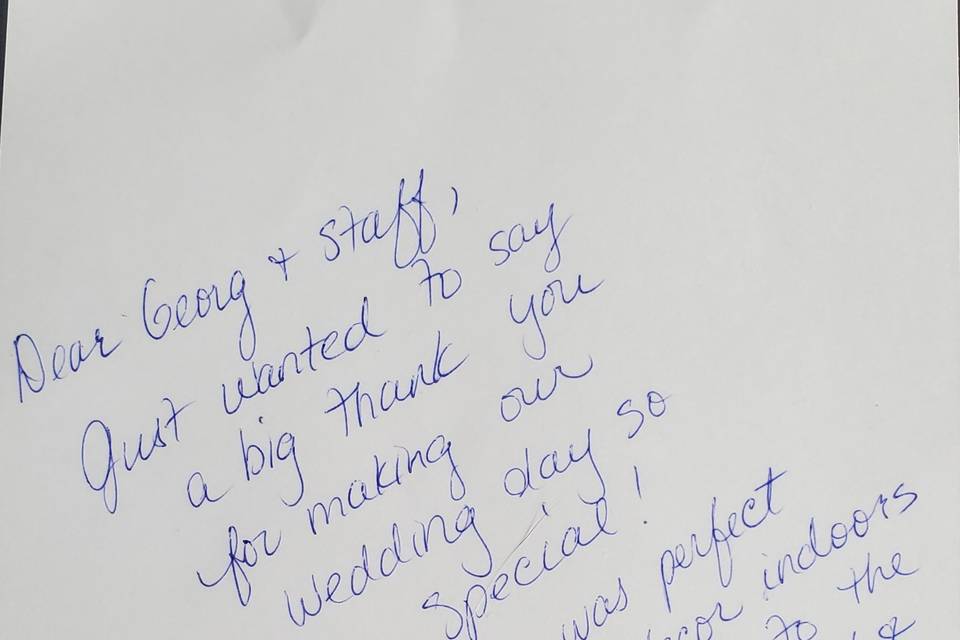 Dear Georg + Staff,
Just wanted to say
a big thank you
for making our
wedding day so
special!
was perfect
indoors
to the